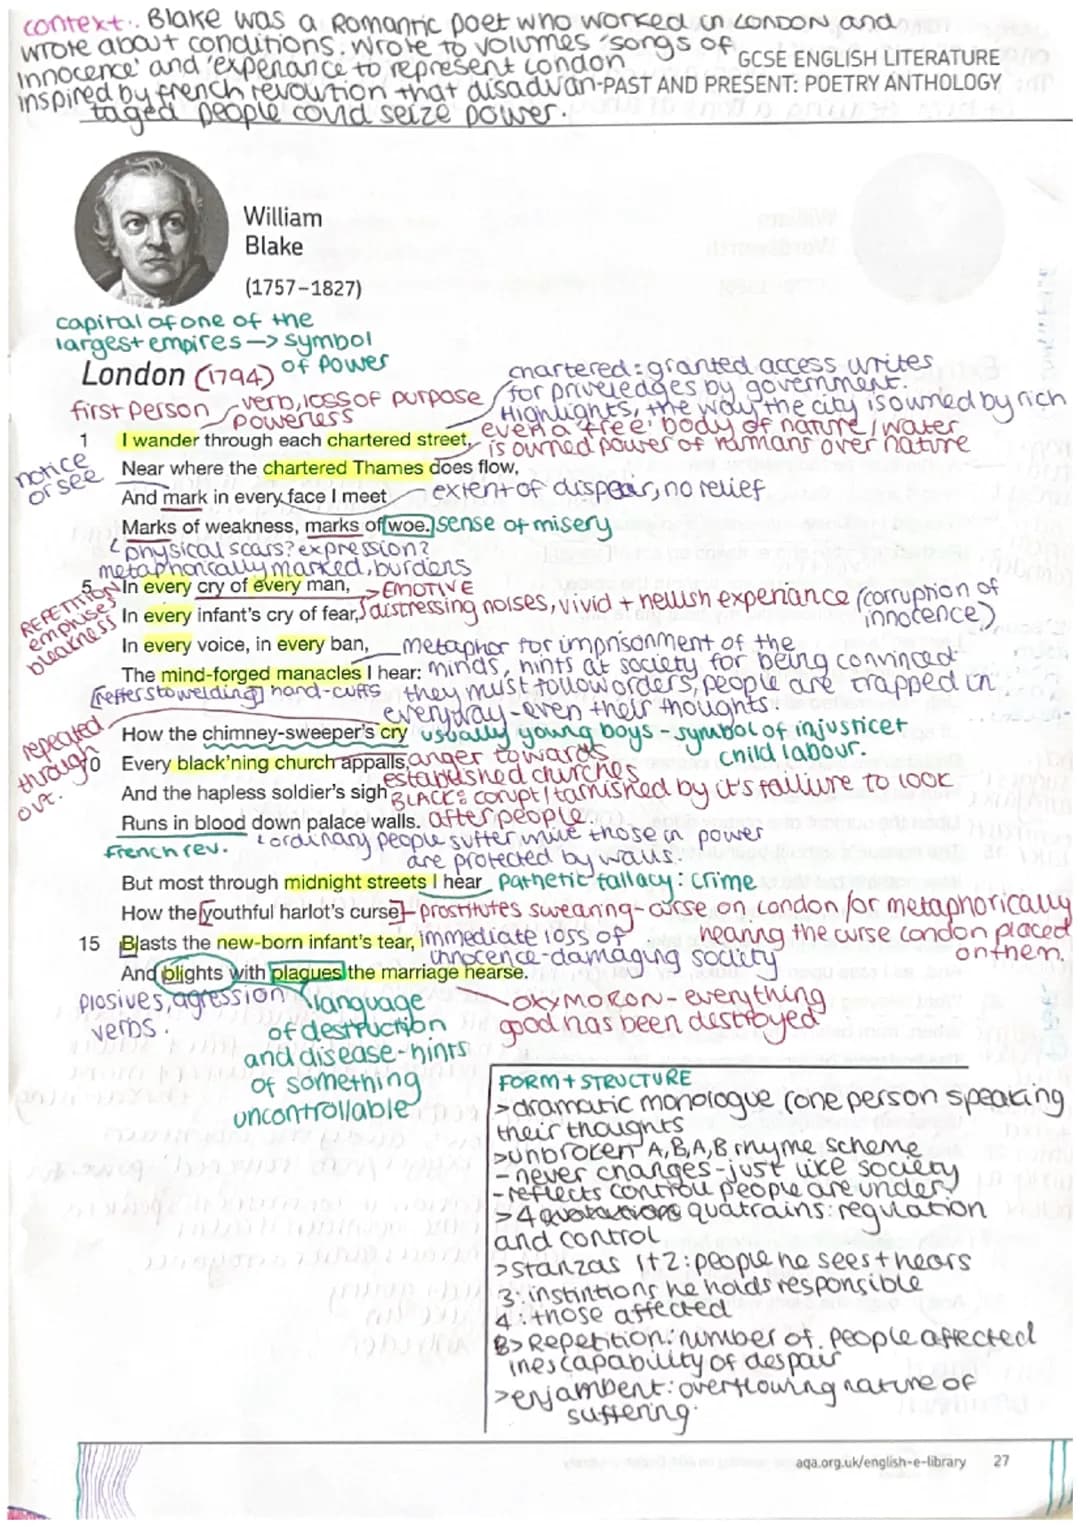 context:. Blake was a Romantic poet who worked in London and
wrote about conditions. Wrote to volumes 'songs of
innocence' and 'experiance to represent London
GCSE ENGLISH LITERATURE
inspired by french revoution that disadvan-
PAST AND PRESENT: POETRY ANTHOLOGY
taged people could seize power.
William
Blake
(1757–1827)
capital of one of the
largest empires -> symbol
of power
London (1794)
chartered: granted access writes
for priveledges by government.
Highlights, the way the city is owned by rich
first person
verb, loss of purpose
powerless
even a 'free' body of nature/water
is owned power of humans over nature
1 I wander through each chartered street,
notice
or see
Near where the chartered Thames does flow,
And mark in every face I meet
extent of dispear, no relief
Marks of weakness, marks of woe.
sense of misery
physical scars? expression?
metaphorically marked, burdans
5 In every cry of every man,
>EMOTIVE
REPETITION
emphises
bleakness
In every infant's cry of fear,
distressing noises, vivid + hellish experiance (corruption of
innocence)
In every voice, in every ban,
metaphor for imprisonment of the
The mind-forged manacles I hear:
minds, hints at society for being convinced
[reffers to welding] hand-cuffs
they must follow orders, people are trapped in
everyday - even their thoughts.
repeated
through
out.
How the chimney-sweeper's cry
usually young boys - symbol of injustice +
child labour.
10 Every black'ning church appalls,
anger towards
established churches
And the hapless soldier's sigh
BLACK: corupt/tarnished by it's failiure to look
Runs in blood down palace walls.
after people.
French rev.
ordinary people suffer while those in power
are protected by walls.
But most through midnight streets I hear
Pathetic fallacy: crime
How the youthful harlot's curse
prostitutes swearing - curse on London/or metaphorically
hearing the curse London placed
on them.
15 Blasts the new-born infant's tear,
immediate loss of
innocence - damaging society
And blights with plagues the marriage hearse.
plosives, agression
verbs.
language
of destruction
and disease - hints
of something
uncontrollable
OXYMORON - everything
good has been destroyed
FORM + STRUCTURE
>dramatic monologue (one person speaking
their thoughts
>unbroken A,B,A,B rhyme scheme
- never changes - just like society
- reflects controll people are under?
>4 quatrains: regulation
and control
>stanzas 1+2: people he sees + hears
3: instintions he holds responsible
4: those affected
> Repetition: number of people affected
inescapability of despair
>enjambent: overflowing nature of
suffering
aqa.org.uk/english-e-library 27